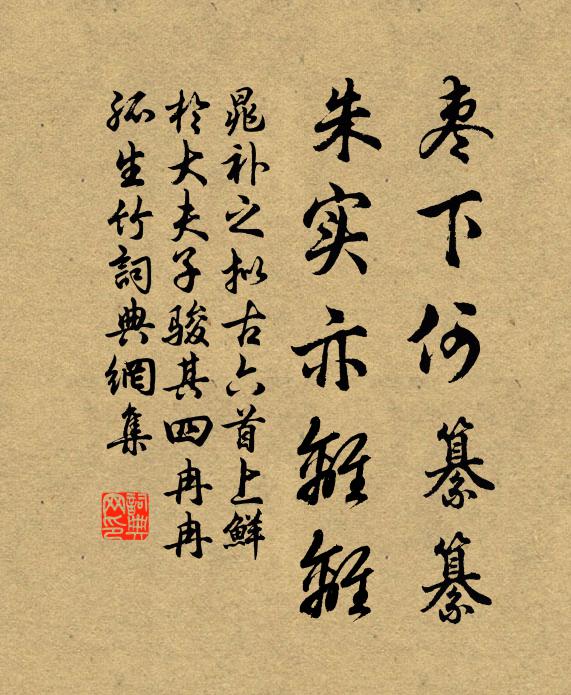 枣下何纂纂
朱实亦离离
晁补之拟古六首上鲜
于大夫子骏其四冉冉
孤生竹詞典網集
詞典
网印